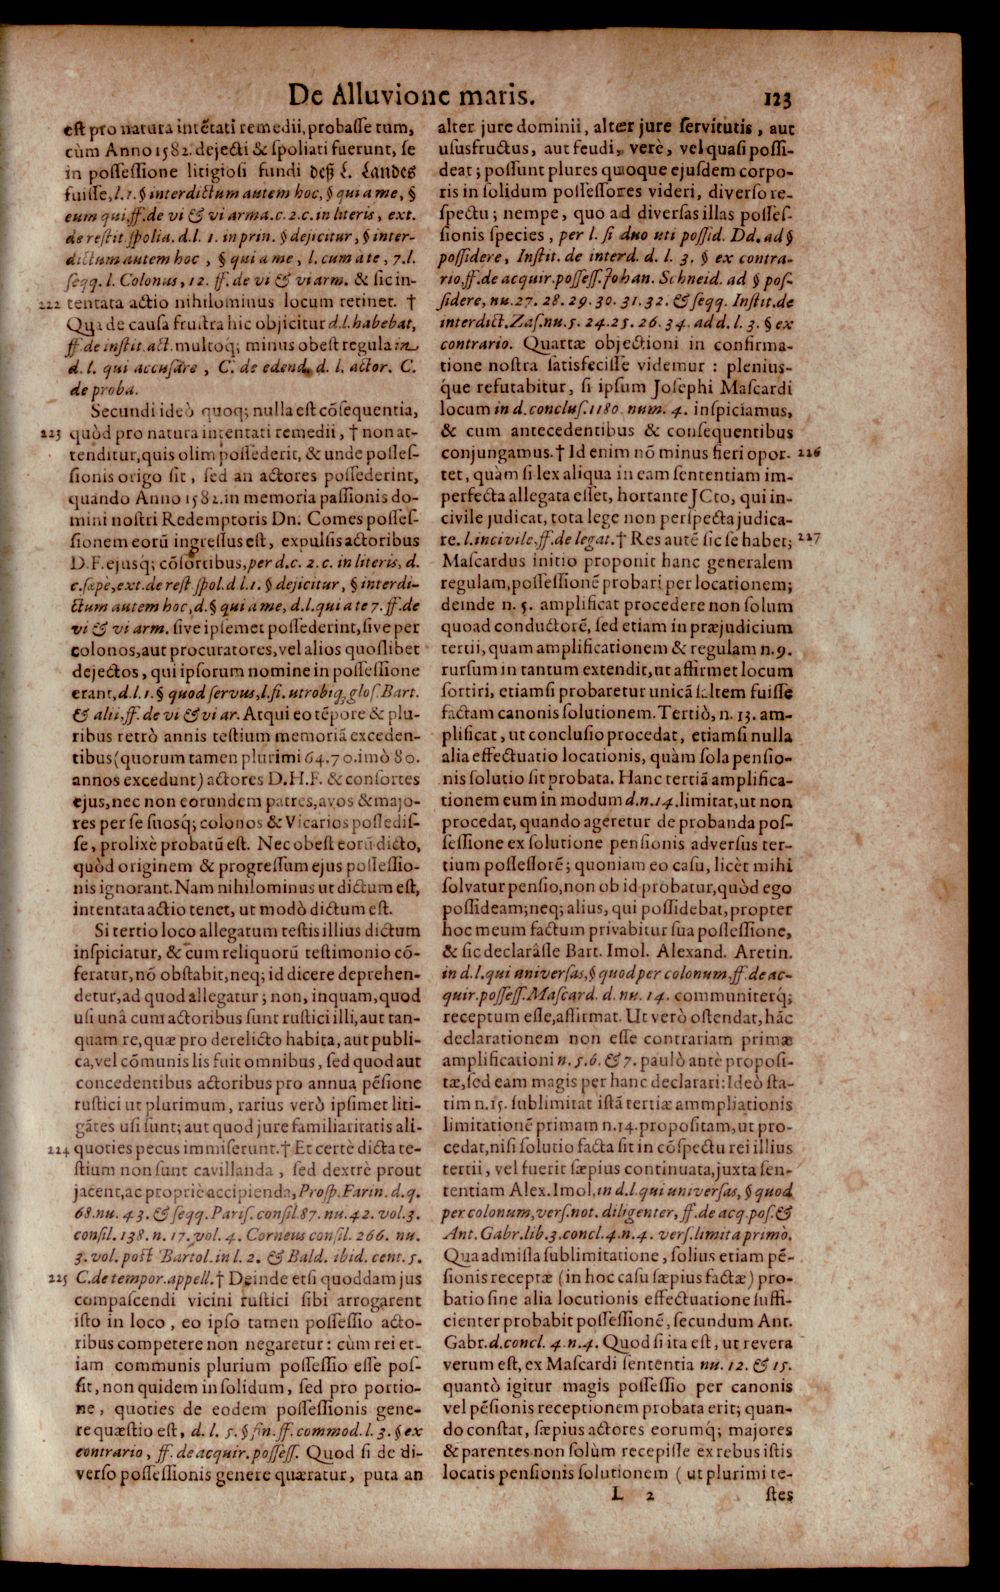 De Alluvione maris.
123
est pro natura intētati remedii, probasse tum,
cùm Anno 1582. dejecti & spoliati fuerunt, se
in possessione litigiosi fundi deß L. Landes
fuisse, l. 1. § interdictum autem hoc, § qui a me, §
eum qui, ff. de vi & vi arma. c. 2. c. in literis, ext.
de restit. spolia. d. l. 1. in prin. § dejicitur, § inter-
dictum autem hoc, § qui a me, l. cum a te, 7. l.
seqq. l. Colonus, 12. ff. de vi & vi arm. & sic in-
222 tentata actio nihilominus locum retinet. †
Qua de causa frustra hic objicitur d. l. habebat,
ff. de instit. act. multoq; minus obest regula in
d. l. qui accusare, C. de edend. d. l. actor. C.
de proba.
Secundi ideò quoq; nulla est cōsequentia,
223 quòd pro natura intentati remedii, † non at-
tenditur, quis olim possederit, & unde posses-
sionis origo sit, sed an actores possederint,
quando Anno 1582. in memoria passionis do-
mini nostri Redemptoris Dn. Comes posses-
sionem eorū ingressus est, expulsis actoribus
D. F. ejusq; cōsortibus, per d. c. 2. c. in literis, d.
c. sæpè, ext. de rest. spol. d. l. 1. § dejicitur, § interdi-
ctum autem hoc, d. § qui a me, d. l. qui a te 7. ff. de
vi & vi arm. sive ipsemet possederint, sive per
colonos, aut procuratores, vel alios quoslibet
dejectos, qui ipsorum nomine in possessione
erant, d. l. 1. § quod servus, l. fi. utrobiq; glos. Bart.
& alii, ff. de vi & vi ar. Atqui eo tēpore & plu-
ribus retrò annis testium memoriā exceden-
tibus (quorum tamen plurimi 64. 70. imò 80.
annos excedunt) actores D. H. F. & consortes
ejus, nec non eorundem patres, avos & majo-
res per se suosq; colonos & Vicarios possedis-
se, prolixè probatū est. Nec obest eorū dicto,
quòd originem & progressum ejus possessio-
nis ignorant. Nam nihilominus ut dictum est,
intentata actio tenet, ut modò dictum est.
Si tertio loco allegatum testis illius dictum
inspiciatur, & cum reliquorū testimonio cō-
feratur, nō obstabit, neq; id dicere deprehen-
detur, ad quod allegatur; non, inquam, quod
usi unâ cum actoribus sunt rustici illi, aut tan-
quam re, quæ pro derelicto habita, aut publi-
ca, vel cōmunis iis fuit omnibus, sed quod aut
concedentibus actoribus pro annua pēsione
rustici ut plurimum, rarius verò ipsimet liti-
gātes usi sunt; aut quod jure familiaritatis ali-
224 quoties pecus immiserunt. † Et certè dicta te-
stium non sunt cavillanda, sed dextrè prout
jacent, ac propriè accipienda, Prosp. Farin. d. q.
68. nu. 43. & seqq. Paris. consil. 87. nu. 42. vol. 3.
consil. 138. n. 17. vol. 4. Corneus consil. 266. nu.
3. vol. post Bartol. in l. 2. & Bald. ibid. cent. 5.
225 C. de tempor. appell. † Deinde etsi quoddam jus
compascendi vicini rustici sibi arrogarent
isto in loco, eo ipso tamen possessio acto-
ribus competere non negaretur: cùm rei et-
iam communis plurium possessio esse pos-
sit, non quidem in solidum, sed pro portio-
ne, quoties de eodem possessionis gene-
re quæstio est, d. l. 5. § fin. ff. commod. l. 3. § ex
contrario, ff. de acquir. possess. Quod si de di-
verso possessionis genere quæratur, puta an
alter jure dominii, alter jure servitutis, aut
ususfructus, aut feudi, verè, vel quasi possi-
deat; possunt plures quoque ejusdem corpo-
ris in solidum possessores videri, diverso re-
spectu; nempe, quo ad diversas illas posses-
sionis species, per l. si duo uti possid. Dd. ad §
possidere, Instit. de interd. d. l. 3. § ex contra-
rio, ff. de acquir. possess. Johan. Schneid. ad § pos-
sidere, nu. 27. 28. 29. 30. 31. 32. & seqq. Instit. de
interdict. Zas. nu. 5. 24. 25. 26. 34. ad d. l. 3. § ex
contrario. Quartæ objectioni in confirma-
tione nostra satisfecisse videmur: plenius-
que refutabitur, si ipsum Josephi Mascardi
locum in d. conclus. 1180. num. 4. inspiciamus,
& cum antecedentibus & consequentibus
conjungamus. † Id enim nō minus fieri opor- 226
tet, quàm si lex aliqua in eam sententiam im-
perfecta allegata esset, hortante JCto, qui in-
civile judicat, tota lege non perspecta judica-
re. l. incivile, ff. de legat. † Res autē sic se habet; 227
Mascardus initio proponit hanc generalem
regulam, possessionē probari per locationem;
deinde n. 5. amplificat procedere non solum
quoad conductorē, sed etiam in præjudicium
tertii, quam amplificationem & regulam n. 9.
rursum in tantum extendit, ut affirmet locum
sortiri, etiamsi probaretur unicā saltem fuisse
factam canonis solutionem. Tertiò, n. 13. am-
plificat, ut conclusio procedat, etiamsi nulla
alia effectuatio locationis, quàm sola pensio-
nis solutio sit probata. Hanc tertiā amplifica-
tionem eum in modum d. n. 14. limitat, ut non
procedat, quando ageretur de probanda pos-
sessione ex solutione pensionis adversus ter-
tium possessorē; quoniam eo casu, licèt mihi
solvatur pensio, non ob id probatur, quòd ego
possideam; neq; alius, qui possidebat, propter
hoc meum factum privabitur sua possessione,
& sic declarâsse Bart. Imol. Alexand. Aretin.
in d. l. qui universas, § quod per colonum, ff. de ac-
quir. possess. Mascard. d. nu. 14. communiterq;
receptum esse, affirmat. Ut verò ostendat, hāc
declarationem non esse contrariam primæ
amplificationi n. 5. 6. & 7. paulò antè proposi-
tæ, sed eam magis per hanc declarari: Ideò sta-
tim n. 15. sublimitat istā tertiæ ammpliationis
limitationē primam n. 14. propositam, ut pro-
cedat, nisi solutio facta sit in cōspectu rei illius
tertii, vel fuerit sæpius continuata, juxta sen-
tentiam Alex. Imol. in d. l. qui universas, § quod
per colonum, vers. not. diligenter, ff. de acq. pos. &
Ant. Gabr. lib. 3. concl. 4. n. 4. vers. limita primò.
Qua admissa sublimitatione, solius etiam pē-
sionis receptæ (in hoc casu sæpius factæ) pro-
batio sine alia locutionis effectuatione suffi-
cienter probabit possessionē, secundum Ant.
Gabr. d. concl. 4. n. 4. Quod si ita est, ut revera
verum est, ex Mascardi sententia nu. 12. & 15.
quantò igitur magis possessio per canonis
vel pēsionis receptionem probata erit; quan-
do constat, sæpius actores eorumq; majores
& parentes non solùm recepisse ex rebus istis
locatis pensionis solutionem (ut plurimi te-
L 2 stes